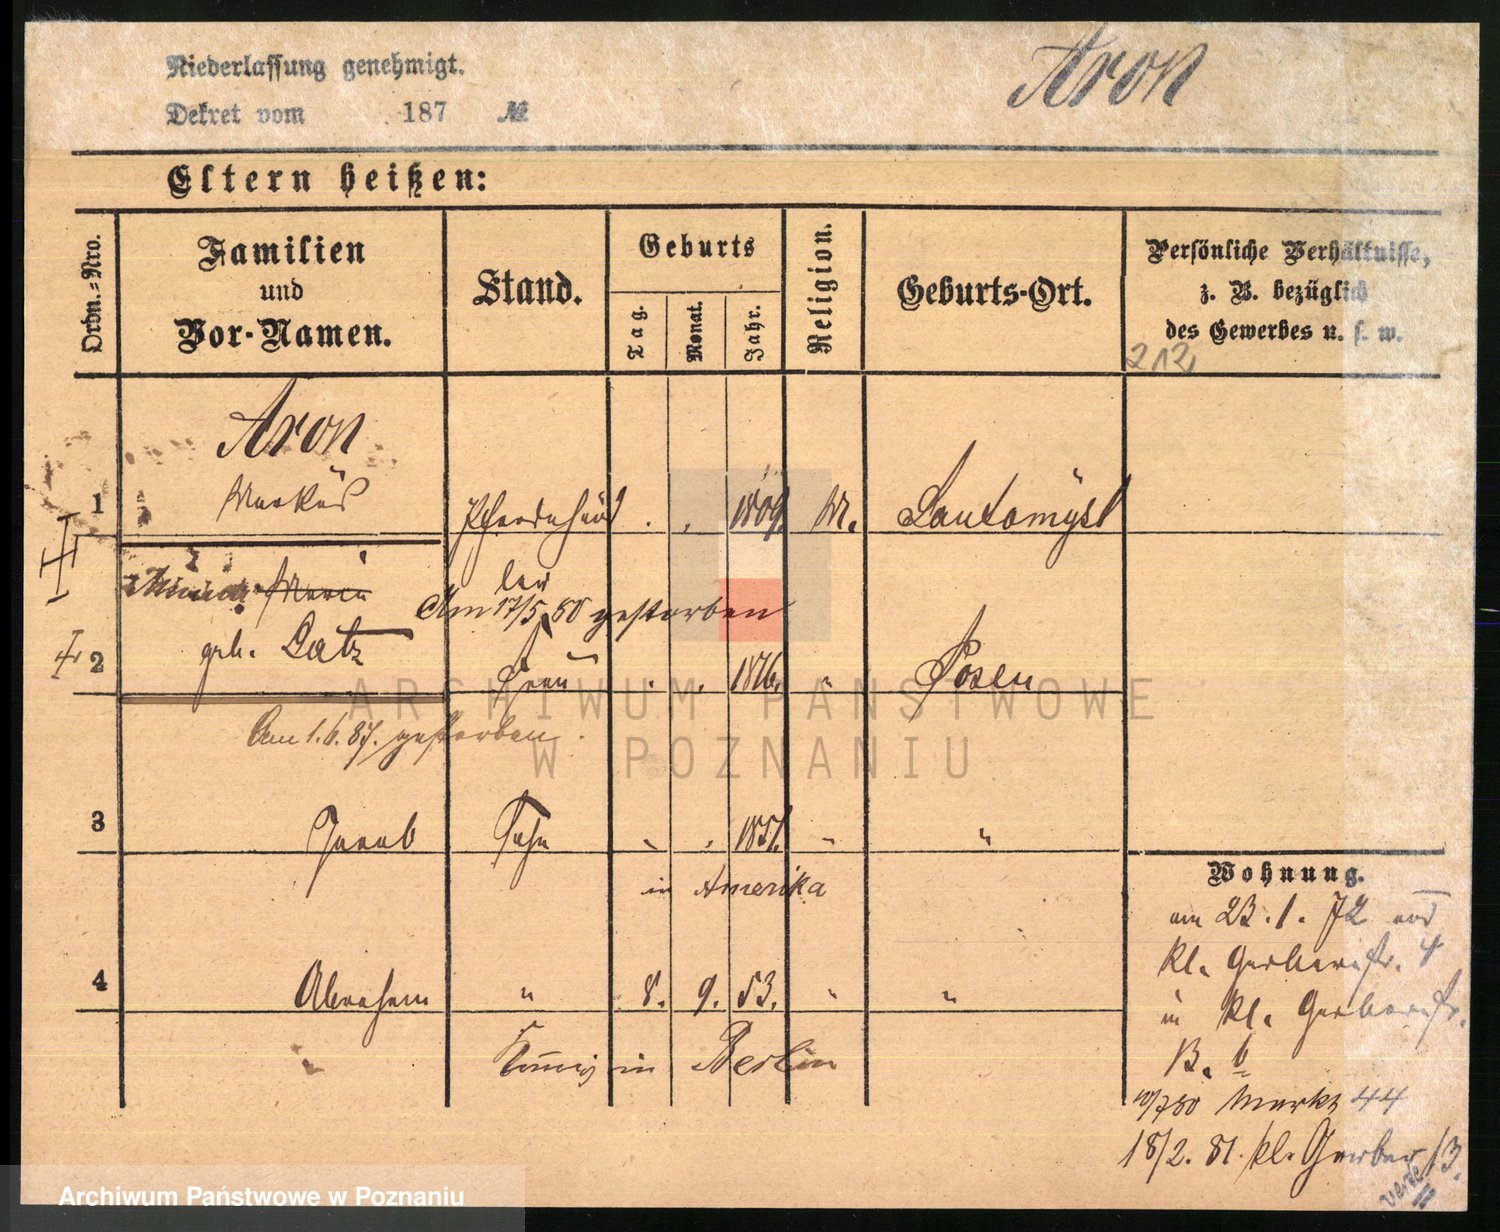 Niederlassung genehmigt.
Dekret vom 187 №
Aron
Eltern heißen:
Ordn.-Nro.
Familien
und
Vor-Namen.
Stand.
Geburts
Tag.
Monat.
Jahr.
Religion.
Geburts-Ort.
Persönliche Verhältnisse,
z. B. bezüglich
des Gewerbes u. s. w.
212
Aron
1 Markus Pferdehänd . . 1809. M. Neutomysl
ler
Minna Marie
Am 17/5 80 gestorben
geb. Latz
2 Frau . . 1816. " Posen
Am 1.6.87. gestorben.
3 Jacob Sohn " . 1851. " "
in Amerika
4 Abraham " 8. 9. 53. " "
in Berlin
Wohnung.
am 23.1.72 aus
kl. Gerberstr. 4
in kl. Gerberstr.
B. 6
Markt 44
18/2. 81. kl. Gerber 13.
ARCHIWUM PAŃSTWOWE
W POZNANIU
Archiwum Państwowe w Poznaniu